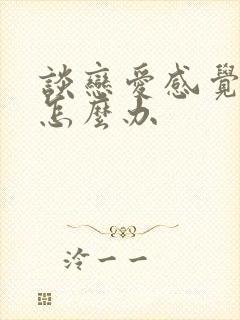 談戀愛感覺
怎麼办
泠一一